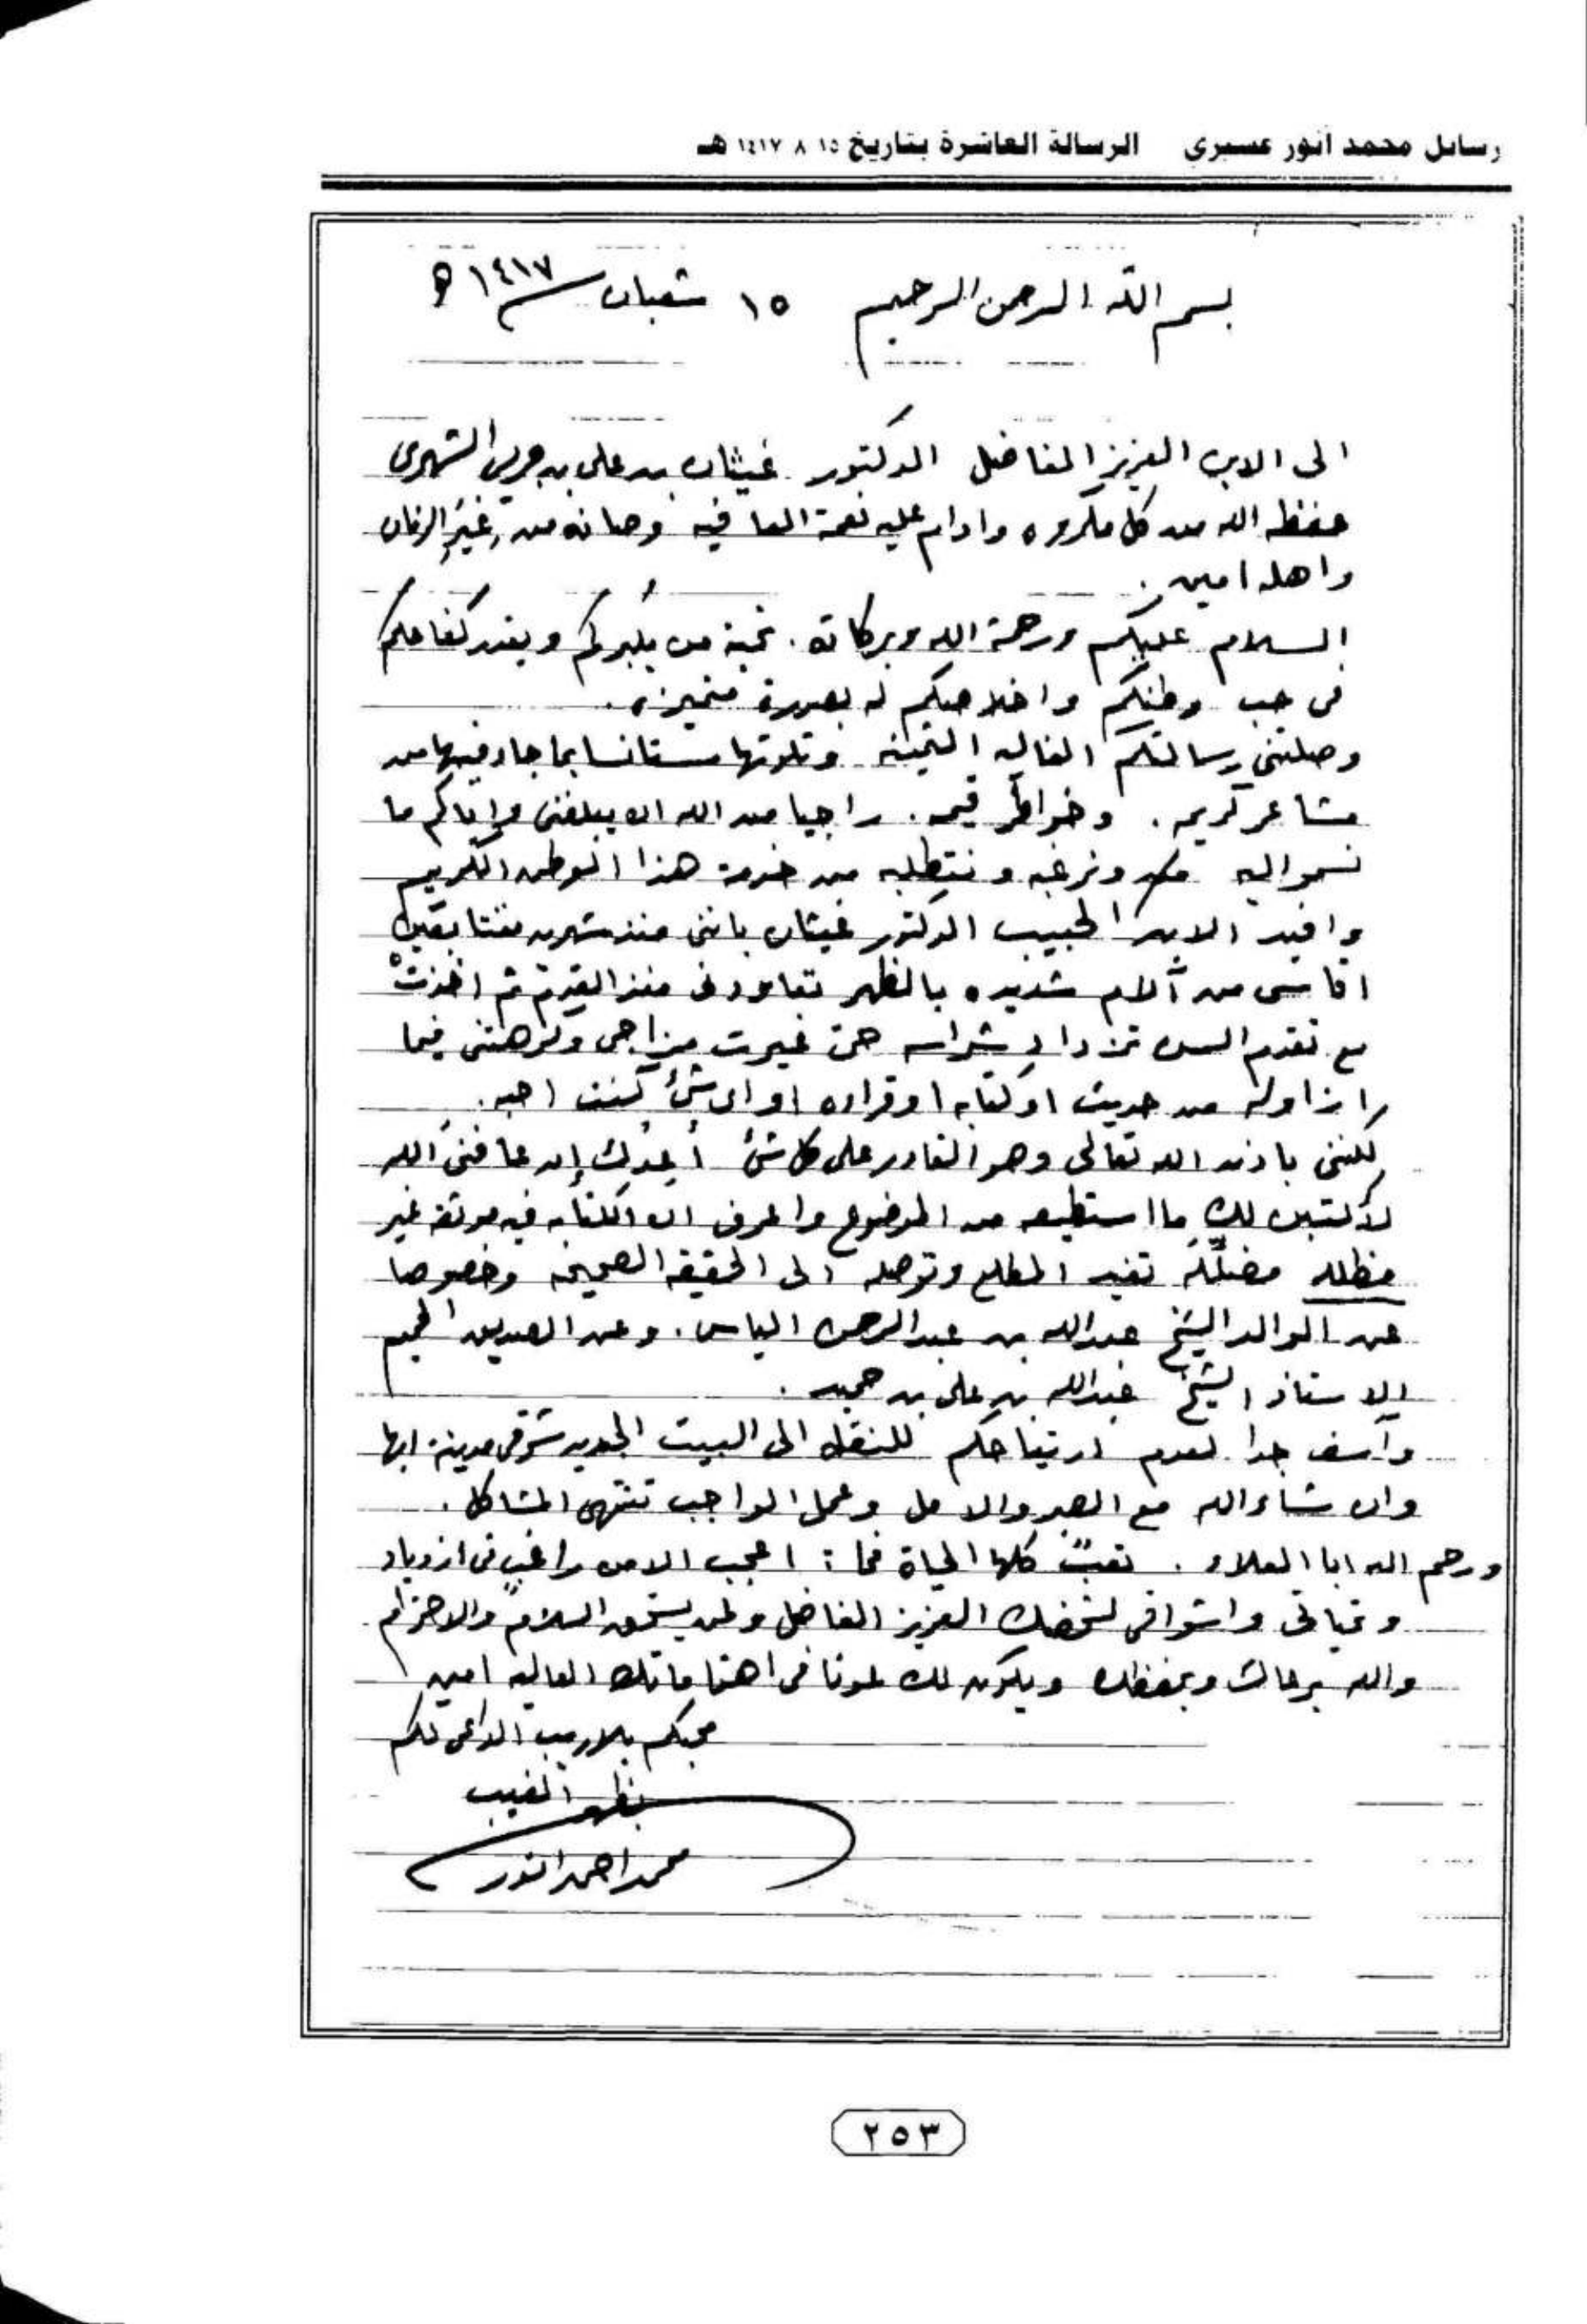 رسائل محمد أنور عسيري الرسالة العاشرة بتاريخ ١٥ ٨ ١٤١٧ هـ
بسم الله الرحمن الرحيم ١٥ شعبان ١٤١٧ ه
الى الابن العزيز الفاضل الدكتور غيثان بن علي بن جريس الشهري
حفظه الله من كل مكروه وادام عليه نعمة العافيه وصانه من غِيَرِ الزمان
واهله امين .
السلام عليكم ورحمة الله وبركاته . تحية من يُكبركم ويقدر كفاحكم
في حب وطنكم واخلاصكم له بصورة متميزه .
وصلتني رسالتكم الغاليه الثمينه وتلوتها مستانسا بما جاء فيها من
مشاعر كريمه . وخواطر قيمه . راجيا من الله ان يبلغني وإياكم ما
نسمو اليه ونرغبه ونتطلبه من خدمة هذا الوطن الكريم
وافيد الابن الحبيب الدكتور غيثان بانني منذ شهرين متتابعين
اقاسي من آلام شديده بالظهر تعاودني منذ القدم ثم اخذتْ
مع تقدم السن تزداد شراسه حتى غيرت مزاجي وكرهتني فيما
ازاوله من حديث او كتابه او قراءه او اي شئ كنت احبه .
لكنني باذن الله تعالى وهو القادر على كل شئ أعِدُك إن عافنىَ الله
لأكتبن لك ما استطيعه من الموضوع واعرف ان الكتابه فيه موثقه غير
مظلله مضلِّله تفيد المطلع وتوصله الى الحقيقه الصحيحه وخصوصا
عن الوالد الشيخ عبدالله بن عبدالرحمن الياس . وعن الصديق الحميم
الاستاذ الشيخ عبدالله بن علي بن حميد .
وآسف جدا لعدم ارتياحكم للنقل الى البيت الجديد شرقي مدينة ابها
وان شاء الله مع الصبر والامل وعمل الواجب تنتهي المشاكل .
ورحم الله ابا العلاء . تعبٌ كلها الحياة فما : اعجب الا من راغبٍ في ازدياد
وتحياتي واشواقي لشخصك العزيز الفاضل ولمن يستحق السلام والاحترام
والله يرعاك ويحفظك ويكون لك عونا في اهتماماتك العاليه امين
محبكم بلا ريب الداعي لكم
بظهر الغيب
محمد احمد انور
٢٥٣